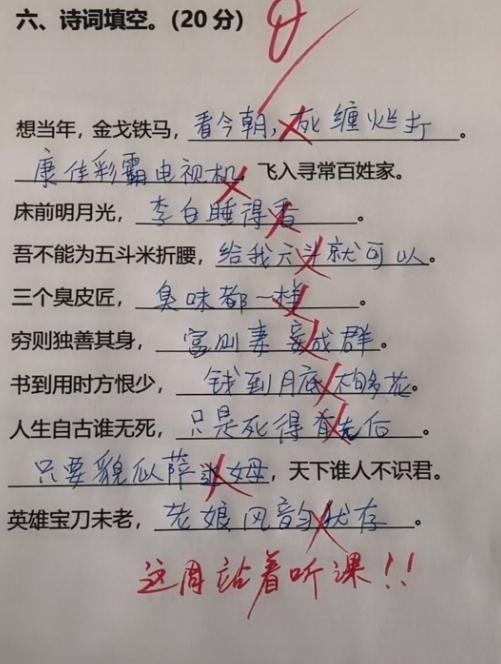 六、诗词填空。(20分)
0
想当年，金戈铁马，看今朝，死缠烂打。
康佳彩霸电视机，飞入寻常百姓家。
床前明月光，李白睡得香。
吾不能为五斗米折腰，给我六斗就可以。
三个臭皮匠，臭味都一样。
穷则独善其身，富则妻妾成群。
书到用时方恨少，钱到月底不够花。
人生自古谁无死，只是死得有先后。
只要貌似萨达姆，天下谁人不识君。
英雄宝刀未老，老娘风韵犹存。
这周站着听课!!